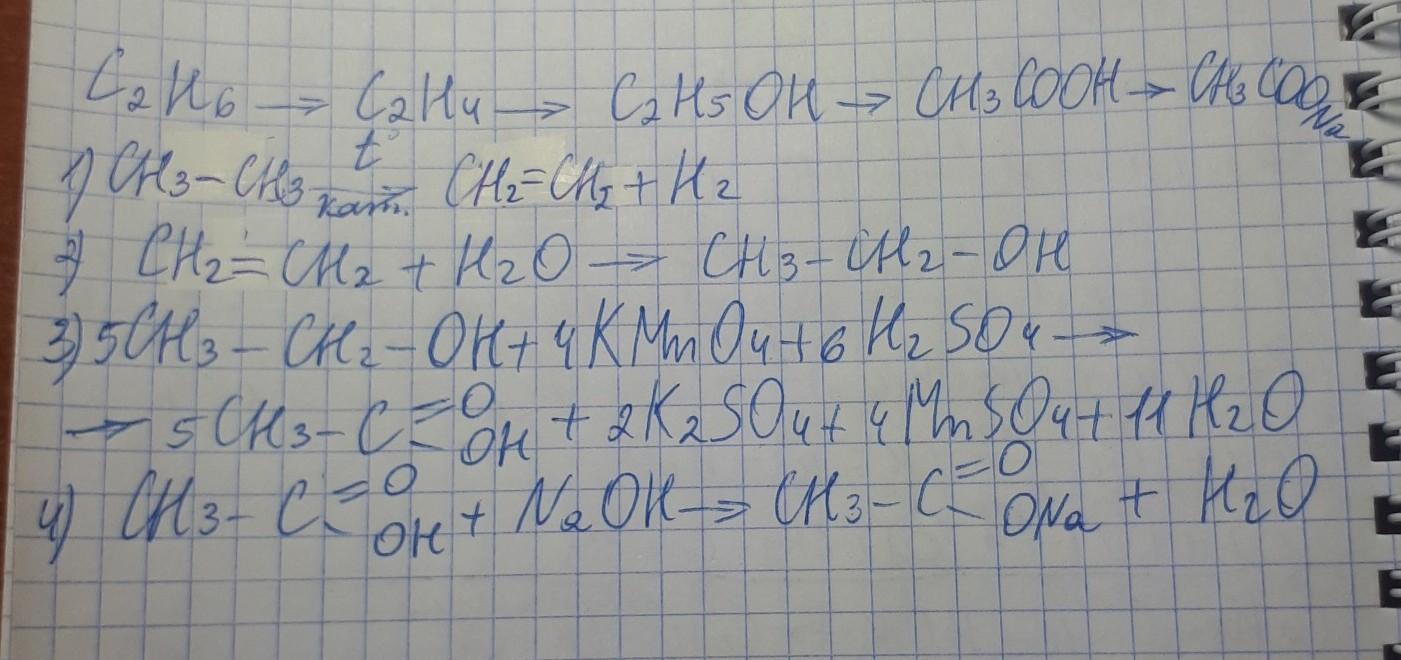 C₂H₆ → C₂H₄ → C₂H₅OH → CH₃COOH → CH₃COONa
1) CH₃-CH₃ t° кат. → CH₂=CH₂ + H₂
2) CH₂=CH₂ + H₂O → CH₃-CH₂-OH
3) 5CH₃-CH₂-OH + 4KMnO₄ + 6H₂SO₄ →
→ 5CH₃-C=O-OH + 2K₂SO₄ + 4MnSO₄ + 11H₂O
4) CH₃-C=O-OH + NaOH → CH₃-C=O-ONa + H₂O